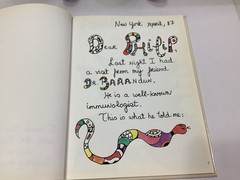 New York April, 87
Dear Philip
Last night I had
a visit from my friend
Dr. BARANDUN.
He is a well-known
immunologist.
This is what he told me: